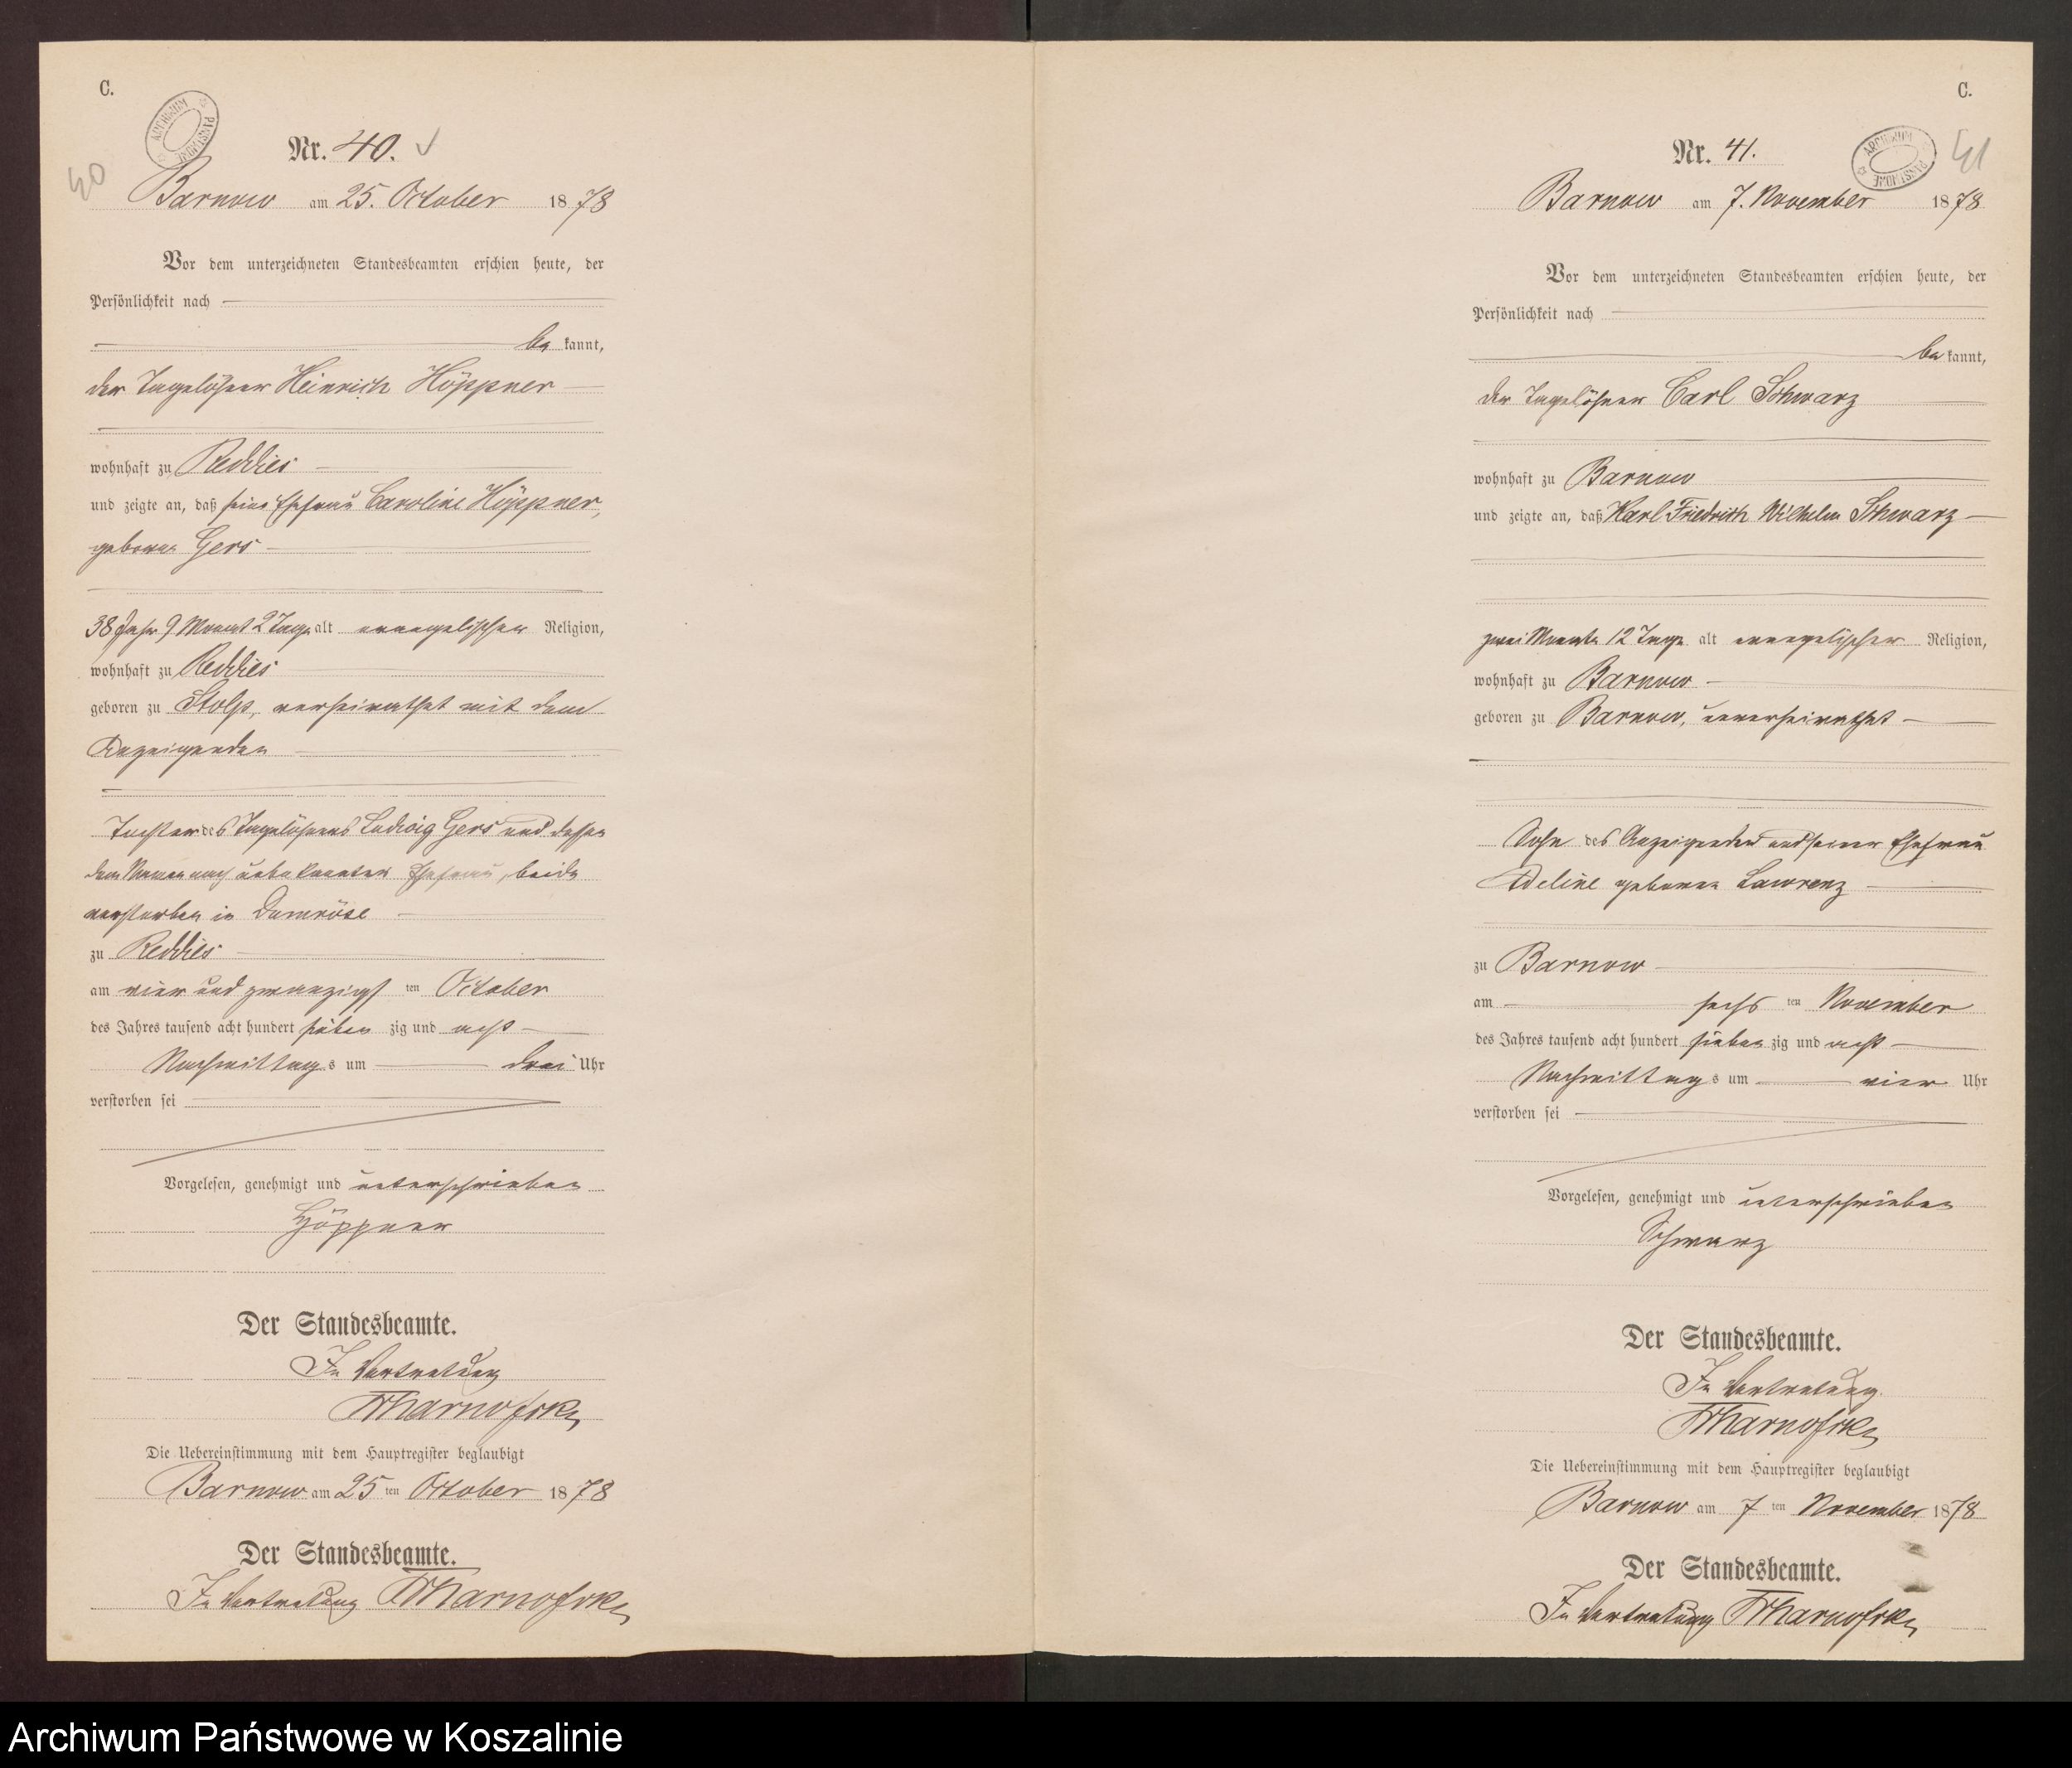 C.
ARCHIWUM PAŃSTWOWE
40
Nr. 40.
Barnow am 25. October 1878
Vor dem unterzeichneten Standesbeamten erschien heute, der
Persönlichkeit nach
be kannt,
der Tagelöhner Heinrich Höppner
wohnhaft zu Reddies
und zeigte an, daß seine Ehefrau Caroline Höppner,
geborne Gers
38 Jahr 9 Monat 2 Tage alt evangelischer Religion,
wohnhaft zu Reddies
geboren zu Stolp, verheirathet mit dem
Anzeigenden
Tochter des Tagelöhners Ludwig Gers und dessen
dem Namen nach unbekannten Ehefrau, beide
verstorben in Damröse
zu Reddies
am vier und zwanzigs ten October
des Jahres tausend acht hundert sieben zig und acht
Nachmittags um drei Uhr
verstorben sei
Vorgelesen, genehmigt und unterschrieben
Höppner
Der Standesbeamte.
In Vertretung
Die Uebereinstimmung mit dem Hauptregister beglaubigt
Barnow am 25 ten October 1878
Der Standesbeamte.
In Vertretung
C.
ARCHIWUM PAŃSTWOWE
41
Nr. 41.
Barnow am 7. November 1878
Vor dem unterzeichneten Standesbeamten erschien heute, der
Persönlichkeit nach
be kannt,
der Tagelöhner Carl Schwarz
wohnhaft zu Barnow
und zeigte an, daß Karl Friedrich Wilhelm Schwarz
zwei Monate 12 Tage alt evangelischer Religion,
wohnhaft zu Barnow
geboren zu Barnow, unverheirathet
Sohn des Anzeigenden und seiner Ehefrau
Adeline geborne Lawrenz
zu Barnow
am sechs ten November
des Jahres tausend acht hundert sieben zig und acht
Nachmittags um vier Uhr
verstorben sei
Vorgelesen, genehmigt und unterschrieben
Schwarz
Der Standesbeamte.
In Vertretung
Die Uebereinstimmung mit dem Hauptregister beglaubigt
Barnow am 7 ten November 1878
Der Standesbeamte.
In Vertretung
Archiwum Państwowe w Koszalinie